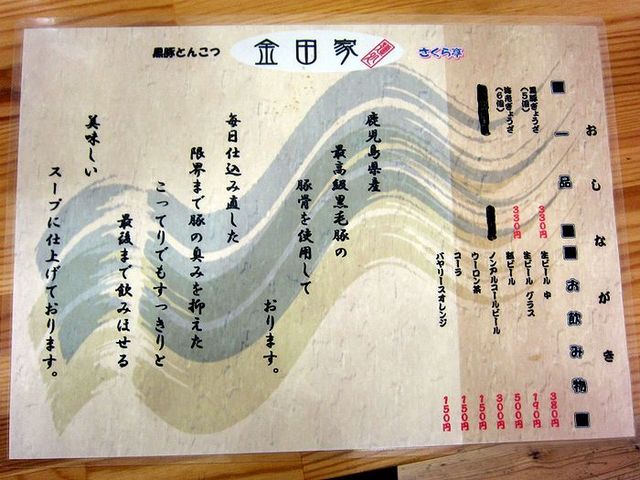 黒豚とんこつ
金田家
さくら亭
おしながき
■一品■
黒豚ぎょうざ
(5個)
330円
海老ぎょうざ
(6個)
330円
■お飲み物■
生ビール 中
380円
生ビール グラス
190円
瓶ビール
500円
ノンアルコールビール
300円
ウーロン茶
150円
コーラ
150円
バヤリースオレンジ
150円
鹿児島県産
最高級黒毛豚の
豚骨を使用して
おります。
毎日仕込み直した
限界まで豚の臭みを抑えた
こってりでもすっきりと
最後まで飲みほせる
美味しい
スープに仕上げております。